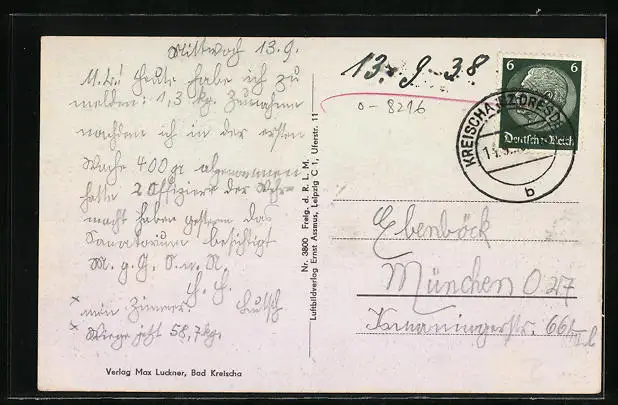 Mittwoch 13.9.
M.L.! Heute habe ich zu
melden: 1,3 kg. Zunahme
nachdem ich in der ersten
Woche 400 gr abgenommen
hatte 2 Offiziere der Wehr-
macht haben gestern das
Sanatorium besichtigt
M. g. G. u. K.
x mein Zimmer.
x Wiege jetzt 58,7 kg.
Verlag Max Luckner, Bad Kreischa
Nr. 3800 Freig. d. R.L.M.
Luftbildverlag Ernst Assmus, Leipzig C 1, Uferstr. 11
13. 9. 38
0-8216
6 6
Deutsches Reich
KREISCHA DRESD
b
Ebenböck
München O 27
66